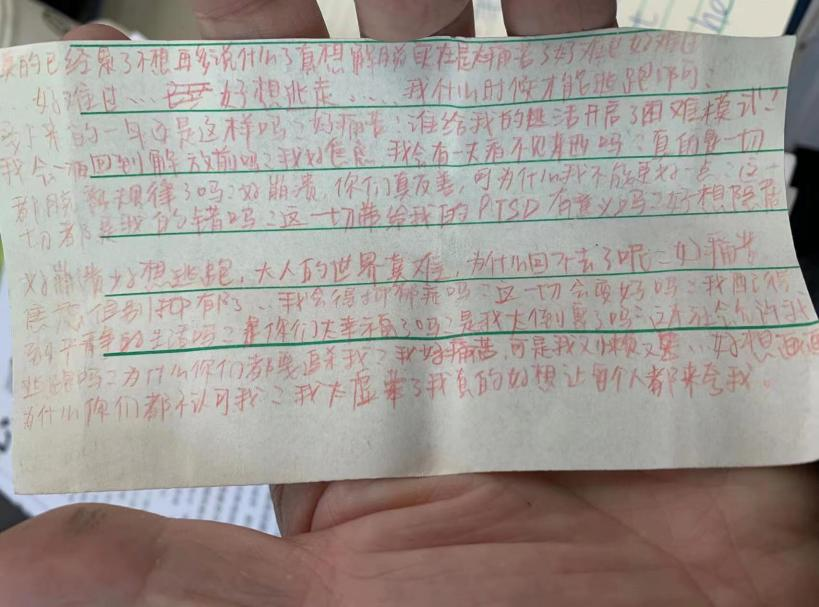 真的已经累了不想再多说什么了真想解脱实在是太痛苦了好难过好难过
好难过……好想逃走……我什么时候才能逃跑呀?
接下来的一年还是这样吗?好痛苦!谁给我的生活开启了困难模式?
我会一夜回到解放前吗?我好焦虑,我会有一天看不见东西吗?真的是一切
都有规律了吗?好崩溃,你们真友善,可为什么我不能更好一点?这一
切都是我的错吗?这一切带给我的PTSD有意义吗?好想隐居
好崩溃好想逃跑,大人的世界真难,为什么回不去了呢?好痛苦
焦虑
我会得抑郁症吗?这一切会变好吗?我
平静的生活吗?你们太幸福了吗?是我太倒霉了吗?这个社会允许我
逃跑吗?为什么你们都要追杀我?我好痛苦,可是我又懒又 好想画画
为什么你们都不认可我?我太虚荣了我真的好想让每个人都来夸我。